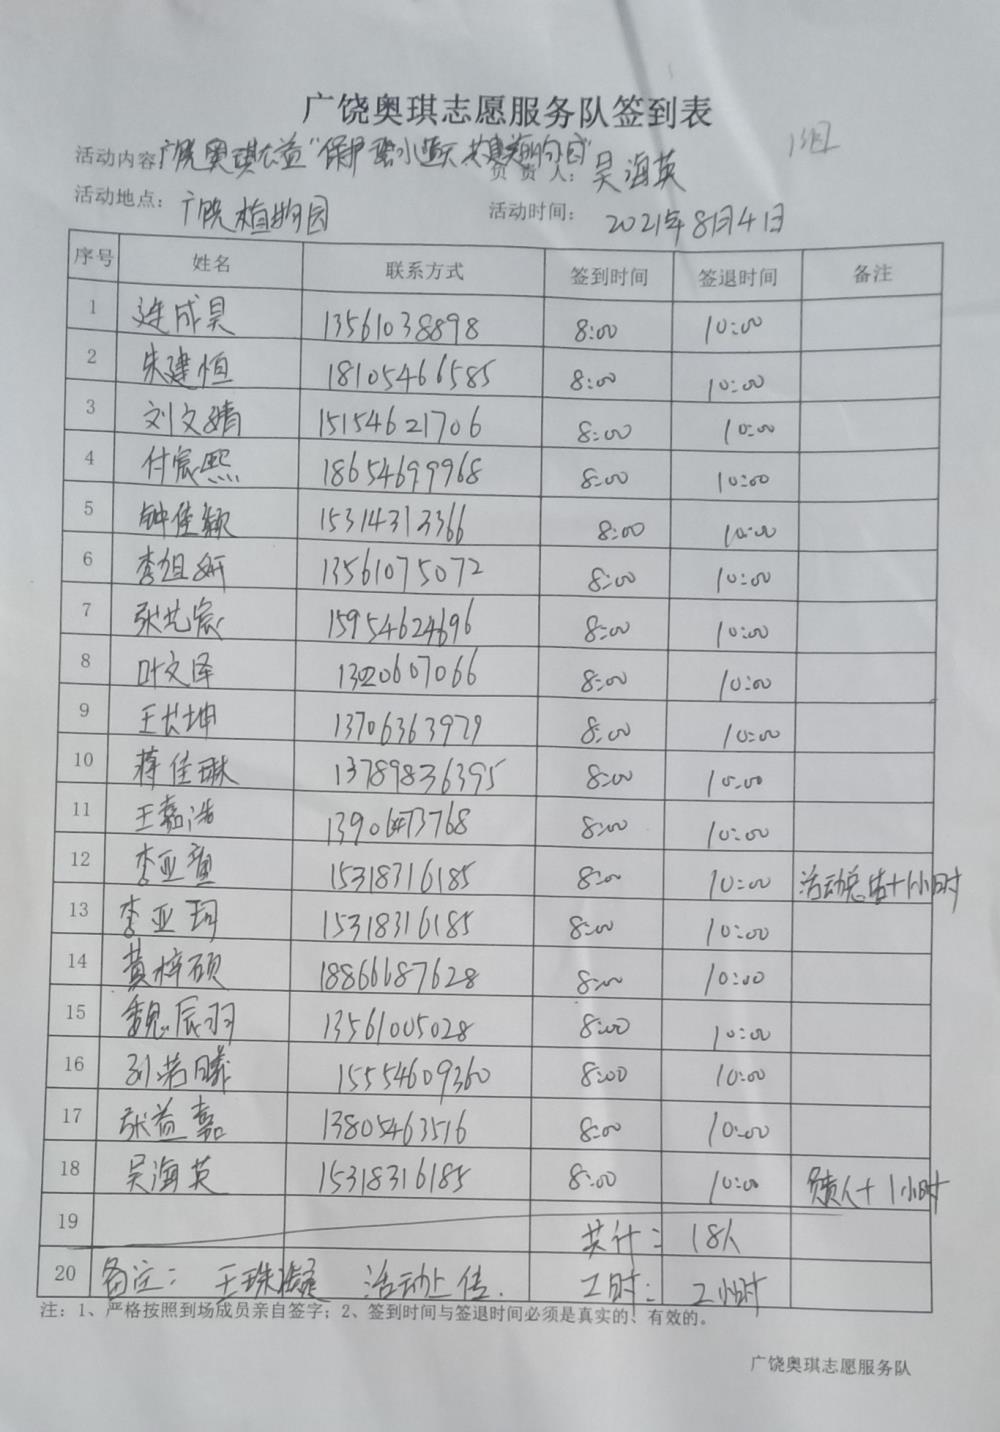 广饶奥琪志愿服务队签到表
活动内容 广饶奥琪公益"保护碧水蓝天 共建美丽家园" 负责人: 吴海英
活动地点: 广饶植物园 活动时间: 2021年8月4日
序号 姓名 联系方式 签到时间 签退时间 备注
1 延成昊 13561038898 8:00 10:00
2 朱建恒 18105466585 8:00 10:00
3 刘文婧 15154621706 8:00 10:00
4 付宸熙 18654699968 8:00 10:00
5 钟佳颖 15314313366 8:00 10:00
6 李姐妍 13561075072 8:00 10:00
7 张艺宸 15954624696 8:00 10:00
8 叶文泽 8:00 10:00
9 王长坤 13706363979 8:00 10:00
10 蒋佳琳 13789836395 8:00 10:00
11 王嘉浩 8:00 10:00
12 李亚童 15318316185 8:00 10:00 活动总结+1小时
13 李亚珂 15318316185 8:00 10:00
14 黄梓硕 18866687628 8:00 10:00
15 魏辰羽 13561005028 8:00 10:00
16 孙若曦 15554609360 8:00 10:00
17 张益嘉 13805463516 8:00 10:00
18 吴海英 15318316185 8:00 10:00 负责人+1小时
19 共计: 18人
20 备注: 王珠凝 活动上传. 工时: 2小时
注: 1、严格按照到场成员亲自签字; 2、签到时间与签退时间必须是真实的、有效的。
广饶奥琪志愿服务队